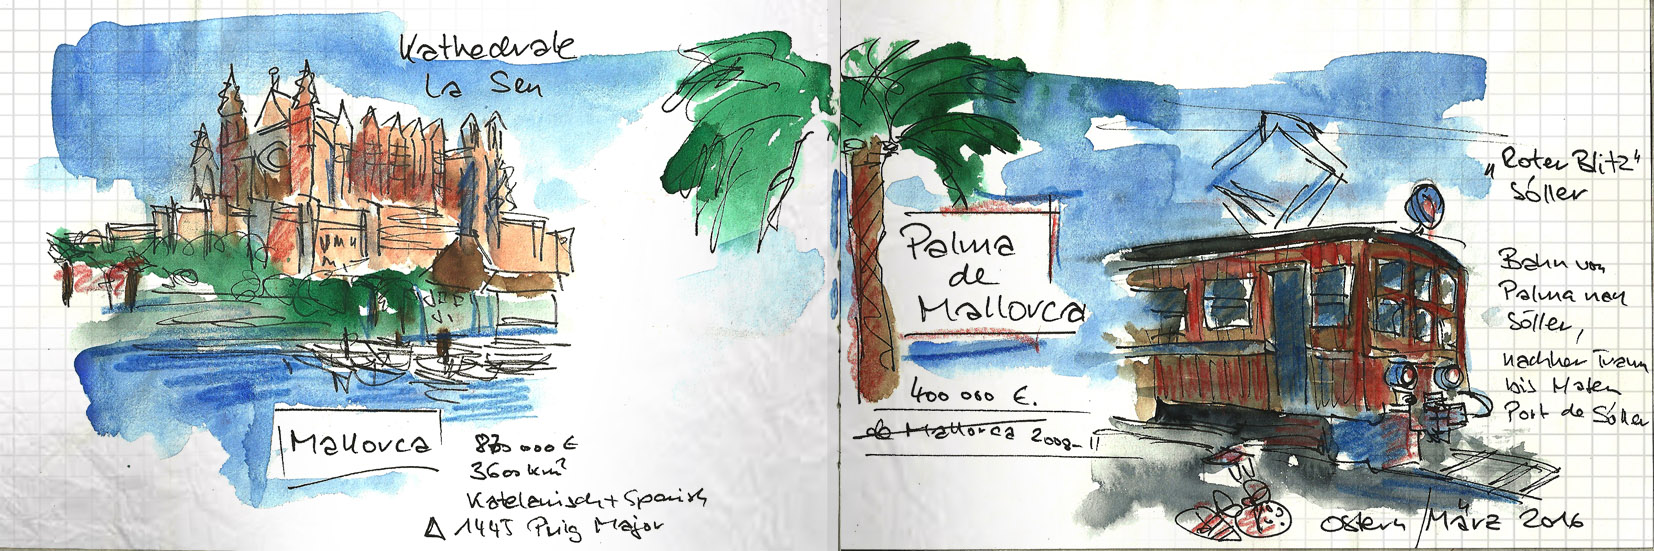 Kathedrale
La Seu
Mallorca
870 000 E
3600 km²
Katelanisch + Spanisch
△ 1445 Puig Major
Palma
de
Mallorca
400 000 E.
de Mallorca 2008-11
„Roter Blitz"
Sóller
Bahn von
Palma nach
Sóller,
nachher Tram
bis Hafen
Port de Sóller
Ostern / März 2016